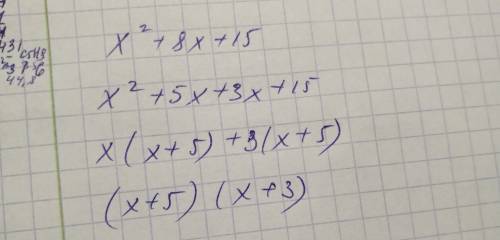 x² + 8x + 15
x² + 5x + 3x + 15
x(x+5) + 3(x+5)
(x+5) (x+3)